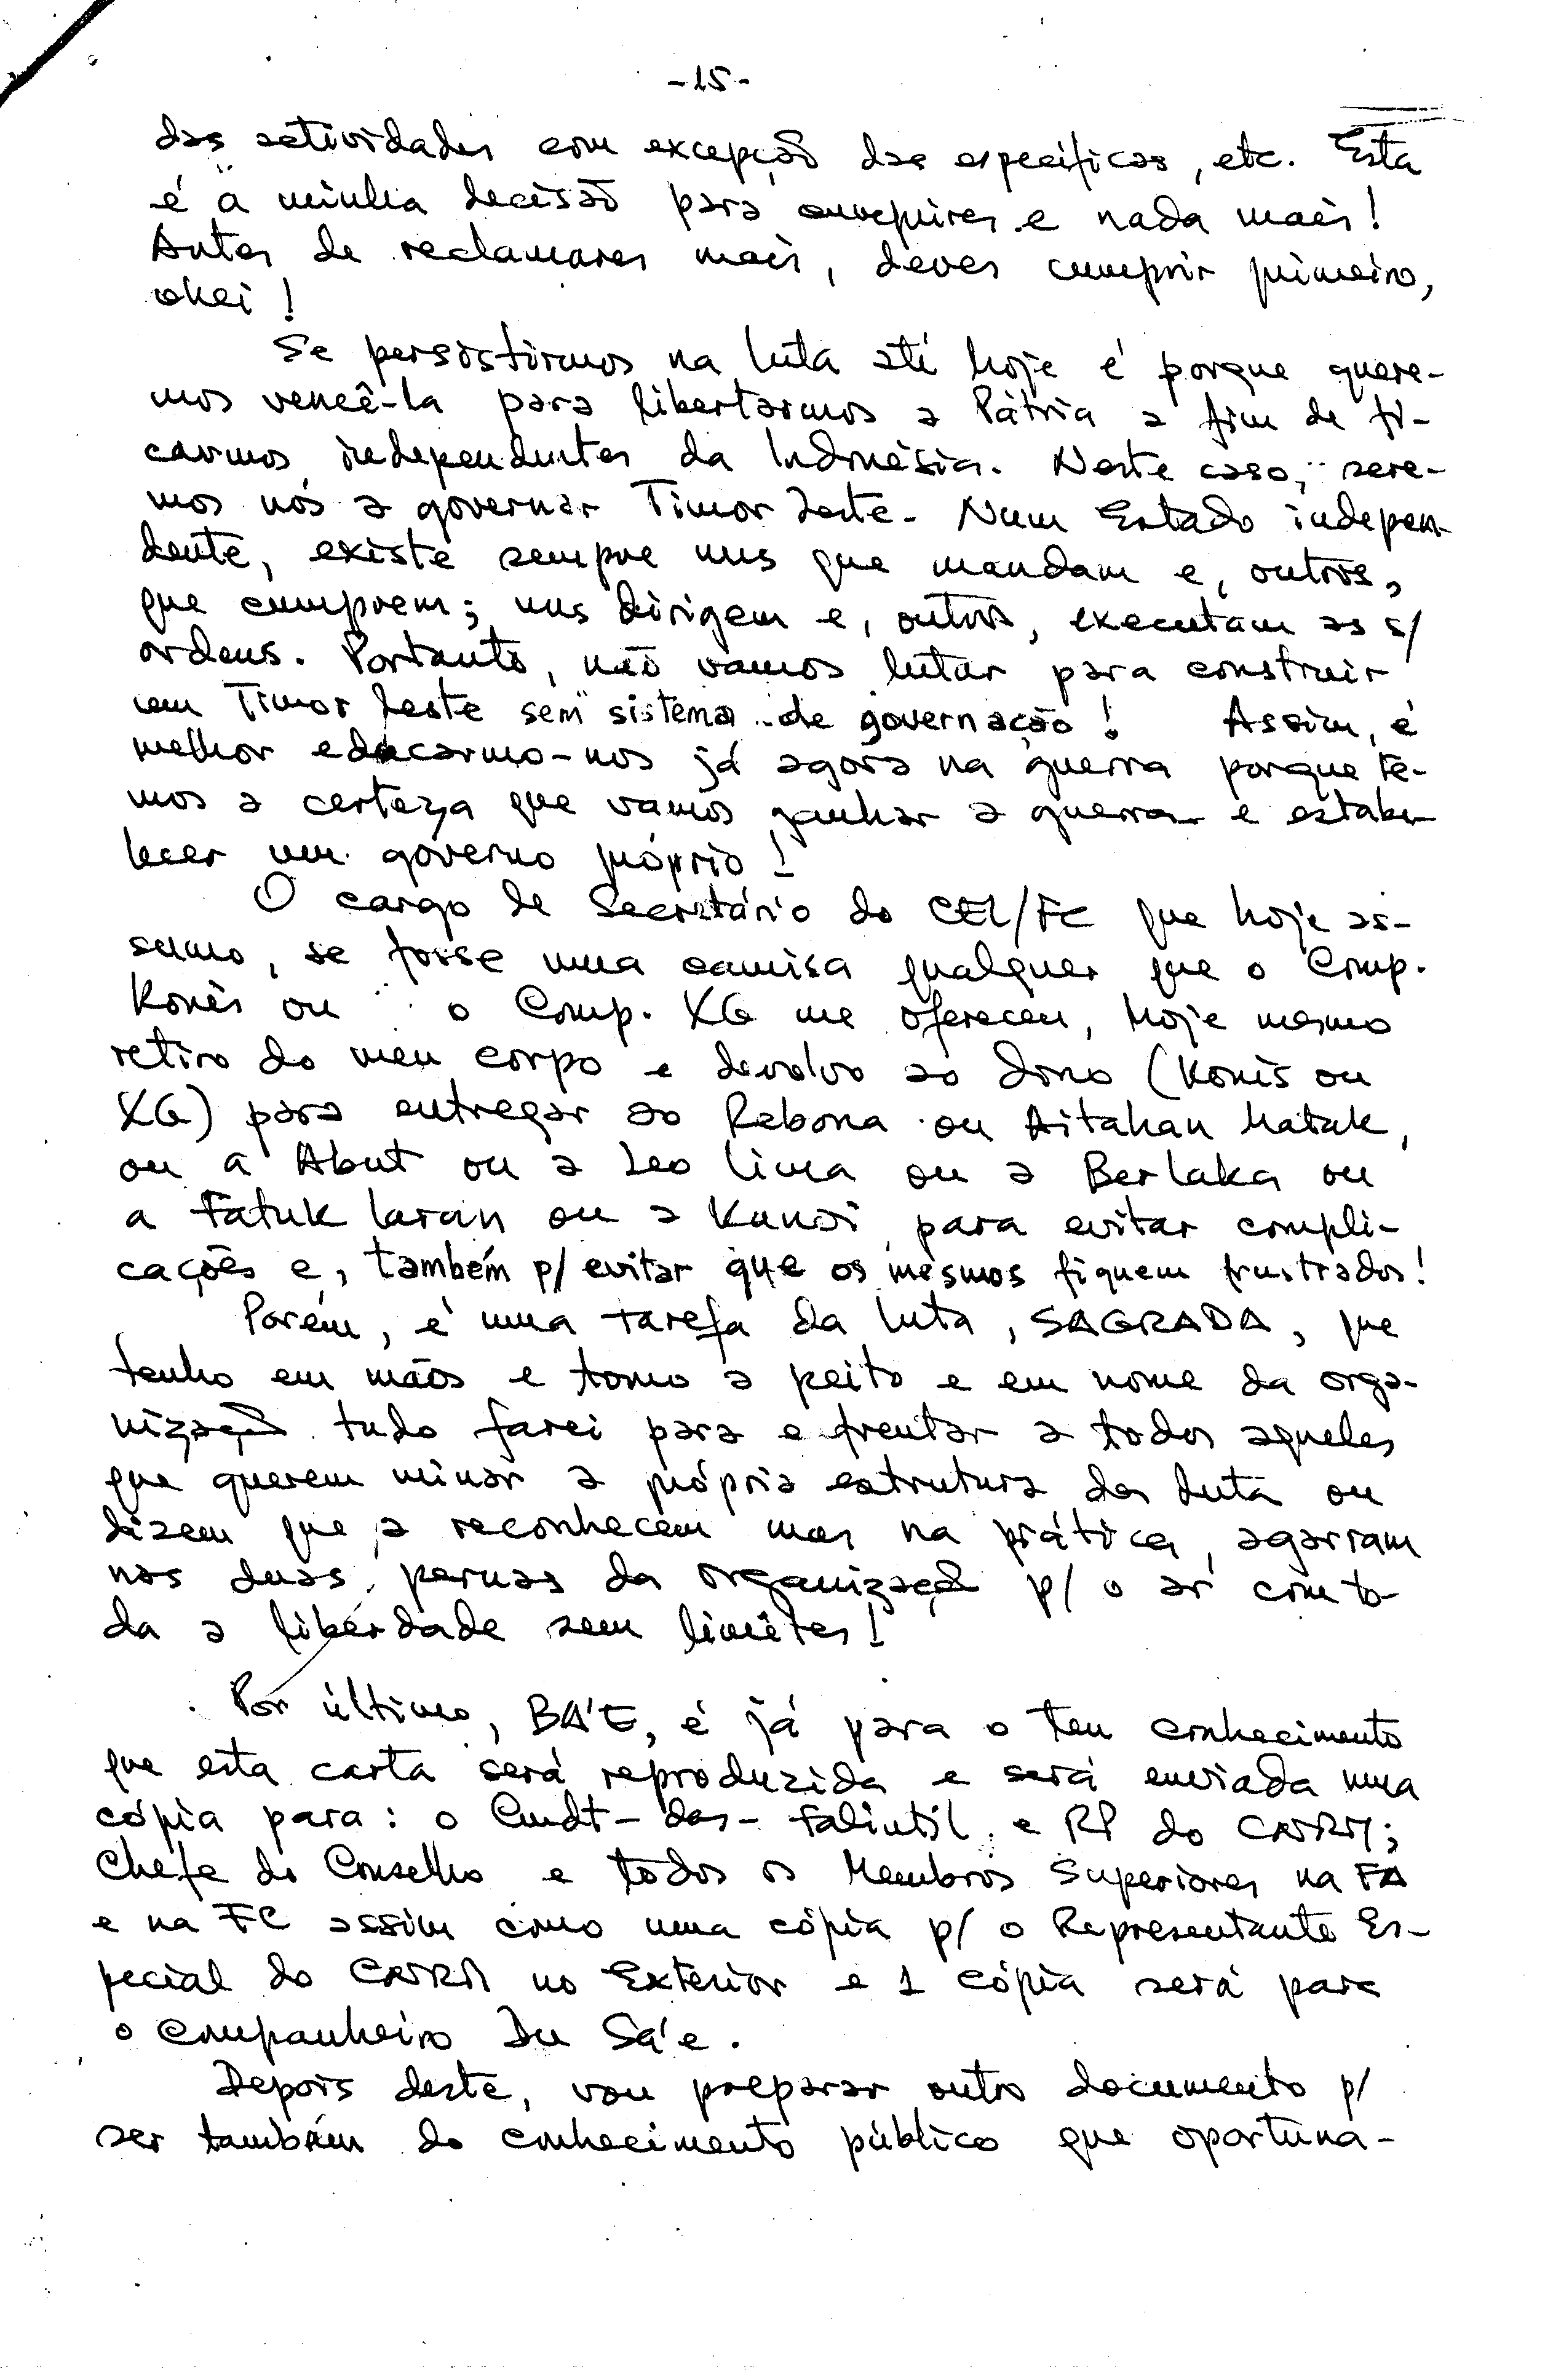 -15-
das actividades com excepção das específicas, etc. Esta
é a minha decisão para cumprires e nada mais!
Antes de reclamares mais, deves cumprir primeiro,
okei!
Se persistirmos na luta até hoje é porque quere-
mos vencê-la para libertarmos a Pátria a fim de fi-
carmos independentes da Indonésia. Neste caso, sere-
mos nós a governar Timor Leste. Num Estado indepen-
dente, existe sempre uns que mandam e, outros,
que cumprem; uns dirigem e, outros, executam as s/
ordens. Portanto, não vamos lutar para construir
um Timor Leste sem sistema de governação! Assim, é
melhor educarmo-nos já agora na guerra porque te-
mos a certeza que vamos ganhar a guerra e estabe-
lecer um governo próprio!
O cargo de Secretário do CEL/FC que hoje as-
sumo, se fosse uma camisa qualquer que o Comp.
Konis ou o Comp. XG me ofereceu, hoje mesmo
retiro do meu corpo e devolvo ao dono (Konis ou
XG) para entregar ao Rabona ou Aitahan Matak,
ou a Abut ou a Leo Lima ou a Berlaka ou
a Fatuk Laran ou a Kunoi para evitar compli-
cações e, também p/ evitar que os mesmos fiquem frustrados!
Porém, é uma tarefa da luta, SAGRADA, que
tenho em mãos e tomo a peito e em nome da orga-
nização tudo farei para efrentar a todos aqueles
que querem minar a própria estrutura da Luta ou
dizem que a reconhecem mas na prática, agarram
nas duas pernas da organização p/ o ar com to-
da a liberdade sem limites!
Por último, BA'E, é já para o teu conhecimento
que esta carta será reproduzida e será enviada uma
cópia para: o Cmdt-das-Falintil e RP do CNRM;
Chefe do Conselho e todos os Membros Superiores na FA
e na FC assim como uma cópia p/ o Representante Es-
pecial do CNRM no Exterior e 1 cópia será para
o companheiro Du Sa'e.
Depois deste, vou preparar outro documento p/
ser também do conhecimento público que oportuna-